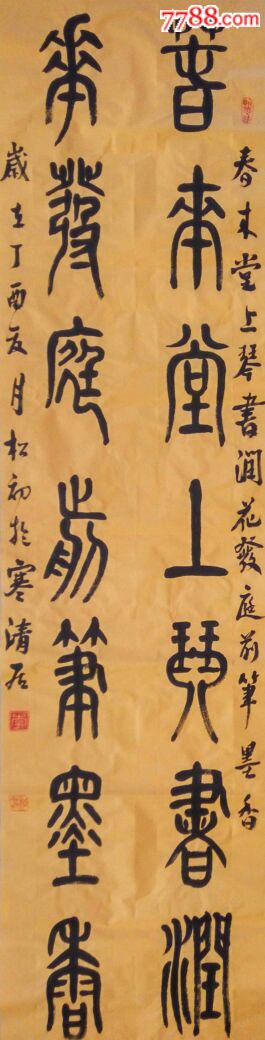 7788.com
春來堂上琴書潤
華發庭前筆墨香
春来堂上琴書潤花發庭前筆墨香
歲在丁酉夏月松初於寒清居